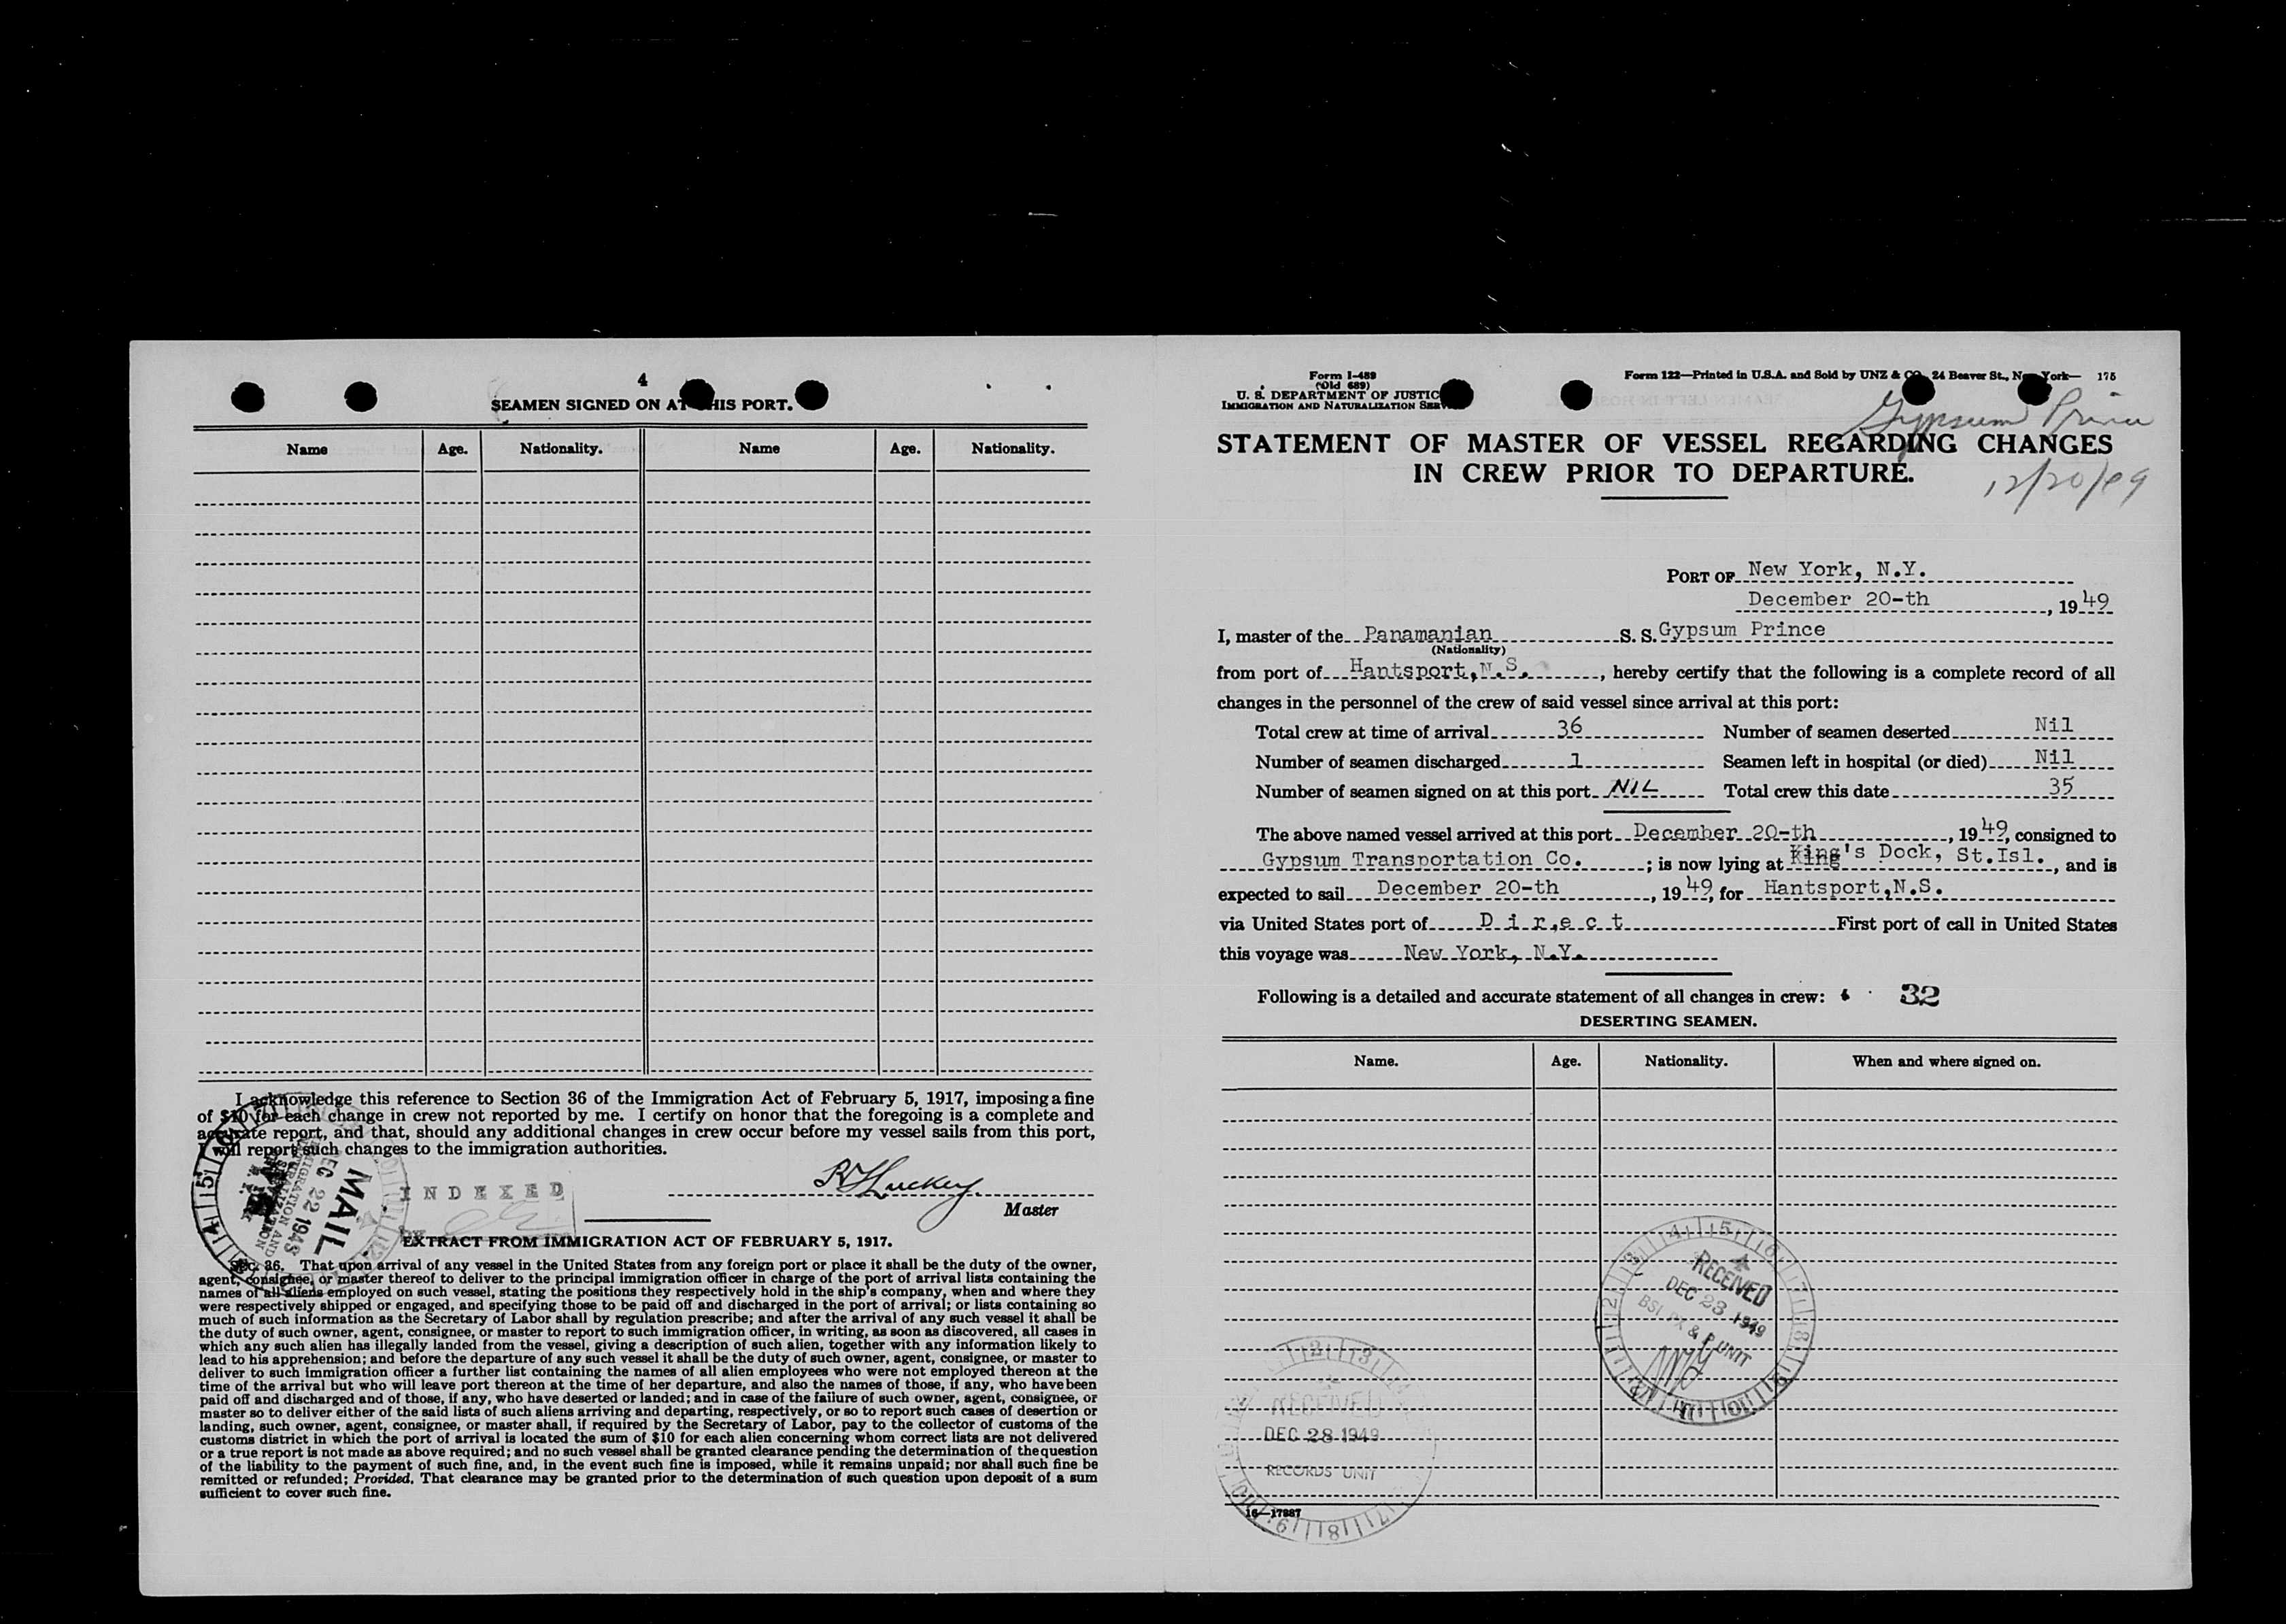 4
SEAMEN SIGNED ON AT THIS PORT.
Name Age. Nationality. Name Age. Nationality.
I acknowledge this reference to Section 36 of the Immigration Act of February 5, 1917, imposing a fine
of $10 for each change in crew not reported by me. I certify on honor that the foregoing is a complete and
accurate report, and that, should any additional changes in crew occur before my vessel sails from this port,
I will report such changes to the immigration authorities.
MAIL
DEC 22 1949
IMMIGRATION AND
NATURALIZATION
INDEXED
Master
EXTRACT FROM IMMIGRATION ACT OF FEBRUARY 5, 1917.
SEC. 36. That upon arrival of any vessel in the United States from any foreign port or place it shall be the duty of the owner,
agent, consignee, or master thereof to deliver to the principal immigration officer in charge of the port of arrival lists containing the
names of all aliens employed on such vessel, stating the positions they respectively hold in the ship's company, when and where they
were respectively shipped or engaged, and specifying those to be paid off and discharged in the port of arrival; or lists containing so
much of such information as the Secretary of Labor shall by regulation prescribe; and after the arrival of any such vessel it shall be
the duty of such owner, agent, consignee, or master to report to such immigration officer, in writing, as soon as discovered, all cases in
which any such alien has illegally landed from the vessel, giving a description of such alien, together with any information likely to
lead to his apprehension; and before the departure of any such vessel it shall be the duty of such owner, agent, consignee, or master to
deliver to such immigration officer a further list containing the names of all alien employees who were not employed thereon at the
time of the arrival but who will leave port thereon at the time of her departure, and also the names of those, if any, who have been
paid off and discharged and of those, if any, who have deserted or landed; and in case of the failure of such owner, agent, consignee, or
master so to deliver either of the said lists of such aliens arriving and departing, respectively, or so to report such cases of desertion or
landing, such owner, agent, consignee, or master shall, if required by the Secretary of Labor, pay to the collector of customs of the
customs district in which the port of arrival is located the sum of $10 for each alien concerning whom correct lists are not delivered
or a true report is not made as above required; and no such vessel shall be granted clearance pending the determination of the question
of the liability to the payment of such fine, and, in the event such fine is imposed, while it remains unpaid; nor shall such fine be
remitted or refunded; Provided, That clearance may be granted prior to the determination of such question upon deposit of a sum
sufficient to cover such fine.
Form I-489
(Old 689)
U. S. DEPARTMENT OF JUSTICE
IMMIGRATION AND NATURALIZATION SERVICE
Form 122—Printed in U.S.A. and Sold by UNZ & CO., 24 Beaver St., New York— 175
Gypsum Prince
STATEMENT OF MASTER OF VESSEL REGARDING CHANGES
IN CREW PRIOR TO DEPARTURE.
12/20/49
PORT OF New York, N.Y.
December 20-th, 1949
I, master of the Panamanian S. S. Gypsum Prince
(Nationality)
from port of Hantsport, N.S., hereby certify that the following is a complete record of all
changes in the personnel of the crew of said vessel since arrival at this port:
Total crew at time of arrival 36 Number of seamen deserted Nil
Number of seamen discharged 1 Seamen left in hospital (or died) Nil
Number of seamen signed on at this port NIL Total crew this date 35
The above named vessel arrived at this port December 20-th, 1949, consigned to
Gypsum Transportation Co.; is now lying at King's Dock, St.Isl., and is
expected to sail December 20-th, 1949, for Hantsport,N.S.
via United States port of Direct First port of call in United States
this voyage was New York, N.Y.
Following is a detailed and accurate statement of all changes in crew: 32
DESERTING SEAMEN.
Name. Age. Nationality. When and where signed on.
RECEIVED
DEC 23 1949
UNIT
RECEIVED
DEC 28 1949
RECORDS UNIT
16—17987